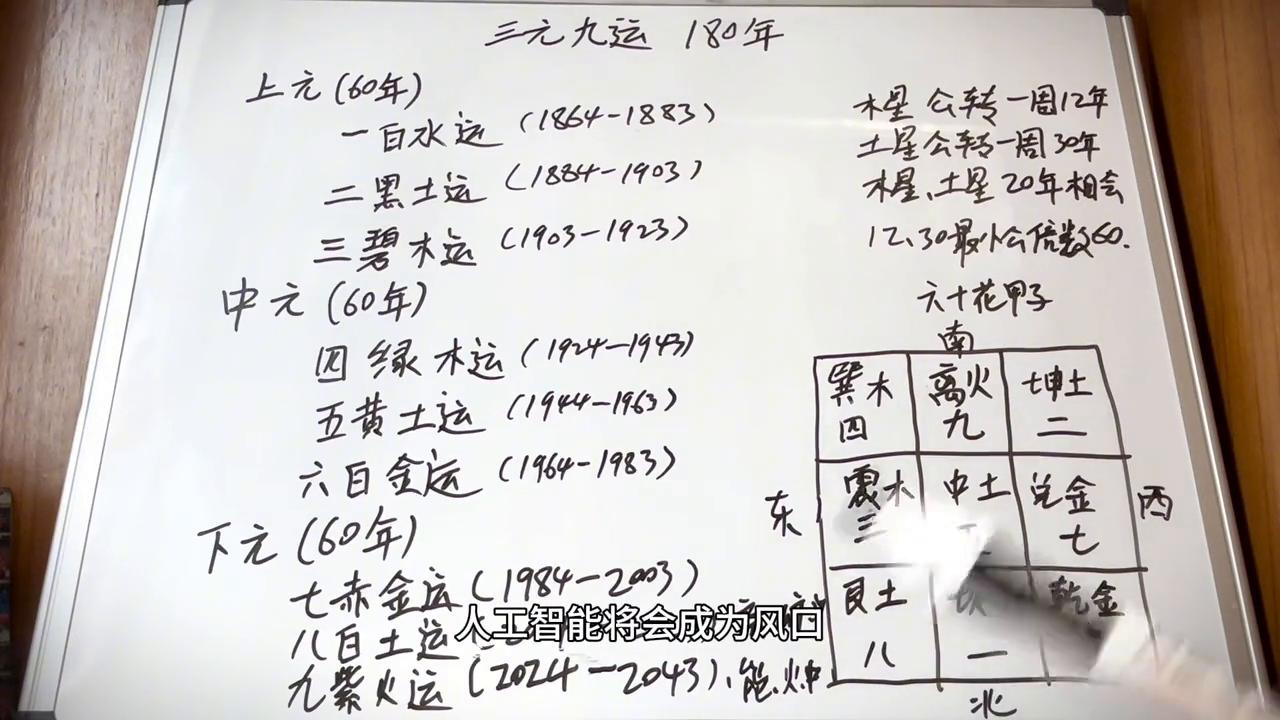 三元九运 180年
上元(60年)
一白水运 (1864-1883)
二黑土运 (1884-1903)
三碧木运 (1903-1923)
中元(60年)
四绿木运 (1924-1943)
五黄土运 (1944-1963)
六白金运 (1964-1983)
下元(60年)
七赤金运 (1984-2003)
八白土运
九紫火运 (2024-2043)、能、火中
木星公转一周12年
土星公转一周30年
木星、土星20年相会
12、30最小公倍数60.
六十花甲子
南
巽木 离火 坤土
四 九 二
东 震木 中土 兑金 西
三 七
艮土 乾金
八 一
北
人工智能将会成为风口